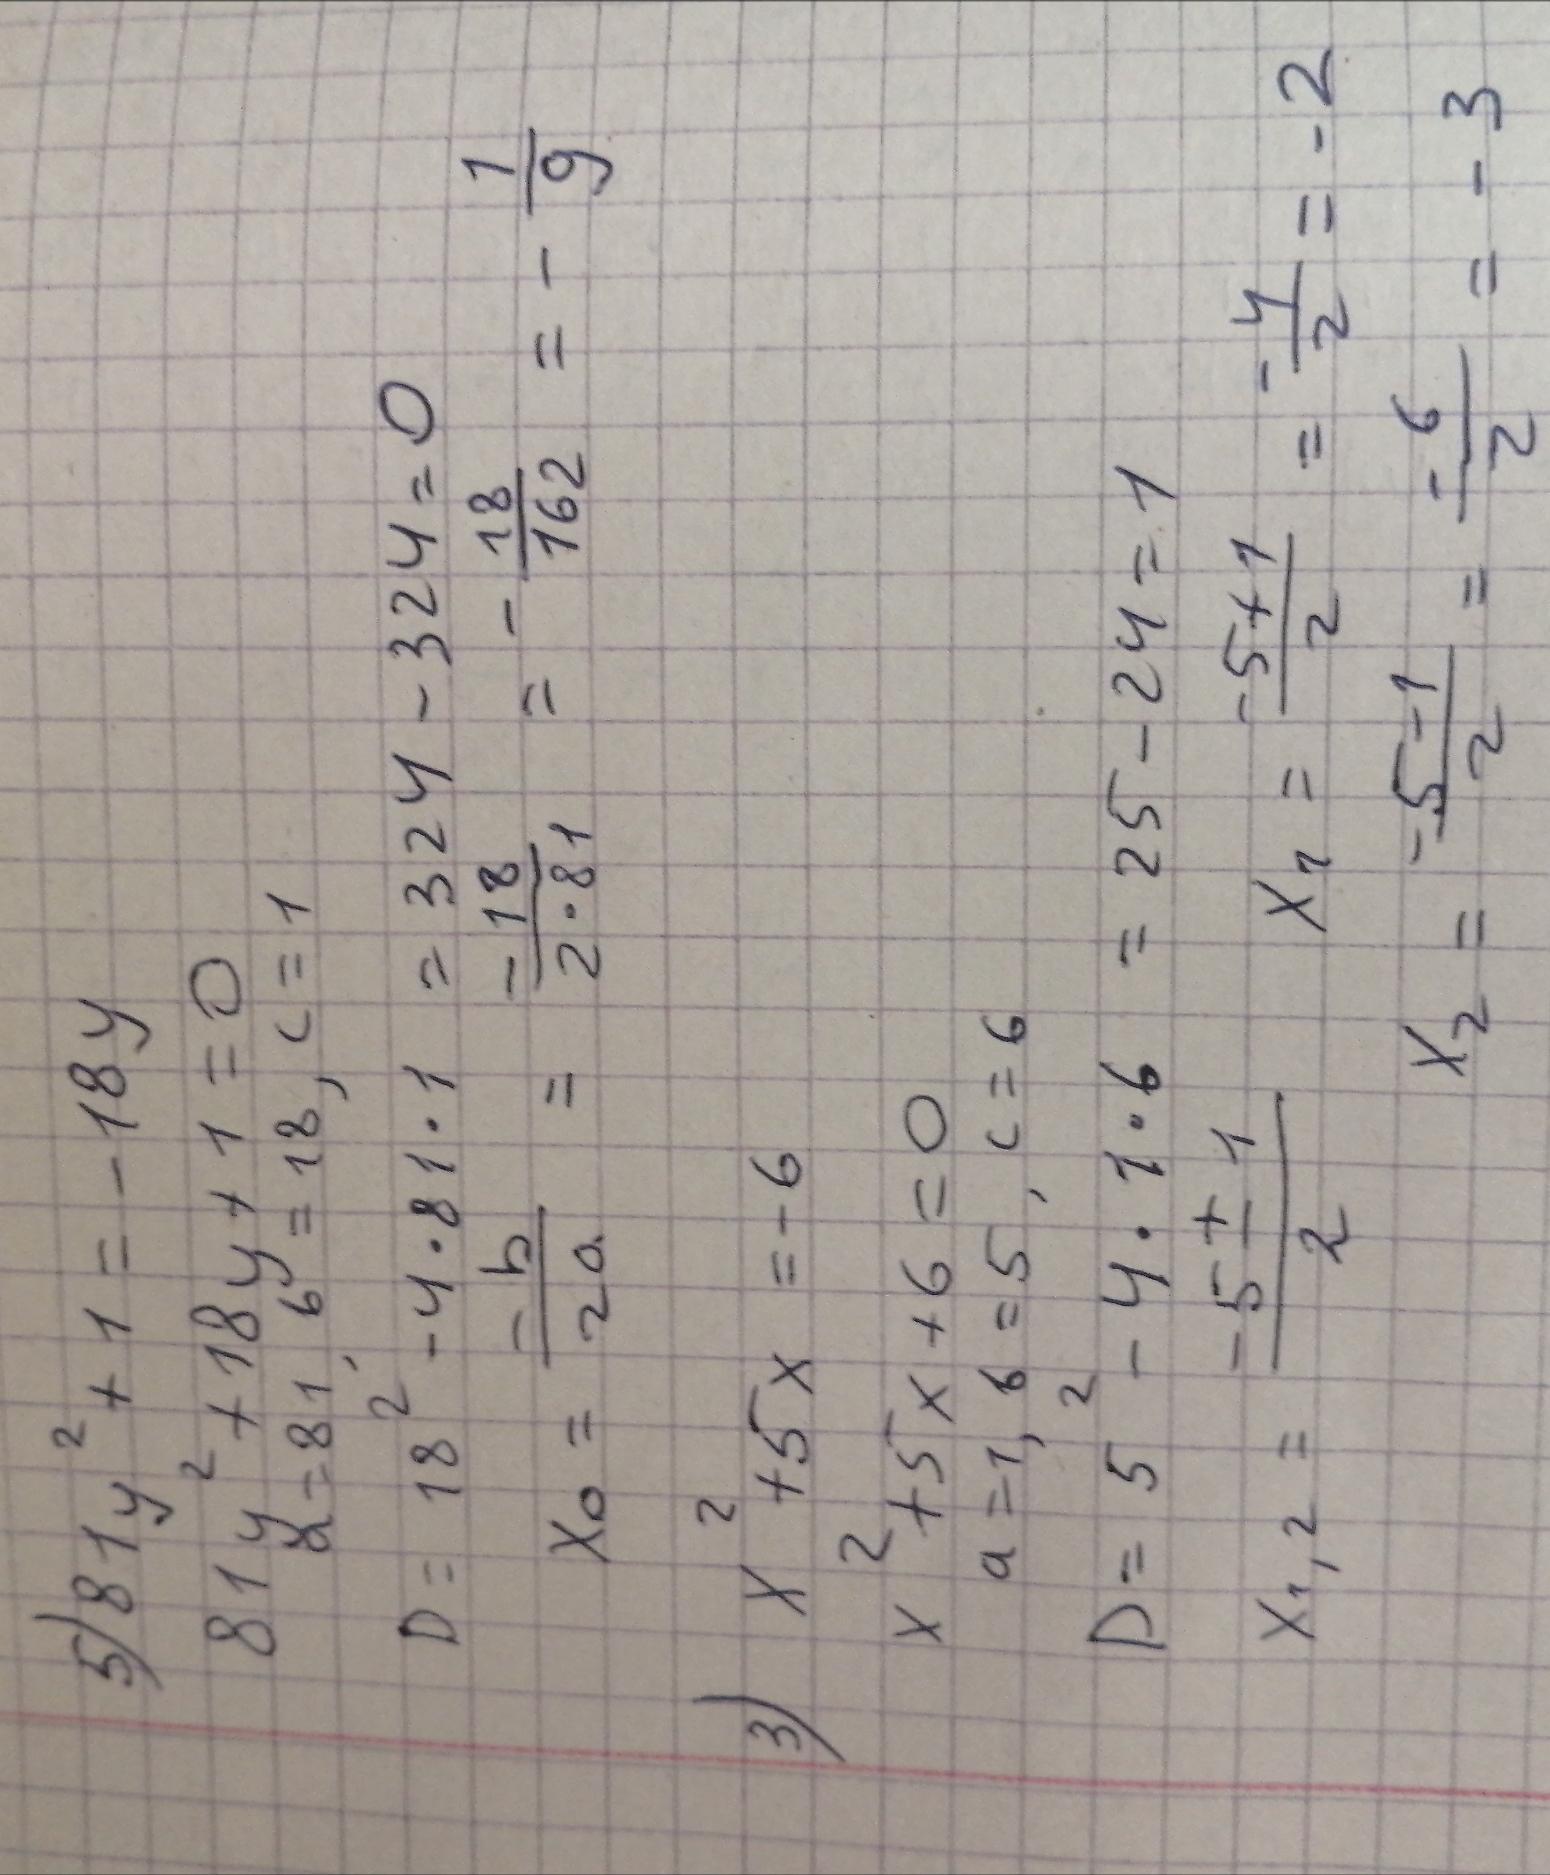 5) 81y² + 1 = -18y
81y² + 18y + 1 = 0
a = 81, b = 18, c = 1
D = 18² - 4·81·1 = 324 - 324 = 0
x₀ = -b/2a = -18/2·81 = -18/162 = -1/9
3) x² + 5x = -6
x² + 5x + 6 = 0
a = 1, b = 5, c = 6
D = 5² - 4·1·6 = 25 - 24 = 1
x₁,₂ = -5 ± 1/2 x₁ = -5+1/2 = -4/2 = -2
x₂ = -5-1/2 = -6/2 = -3